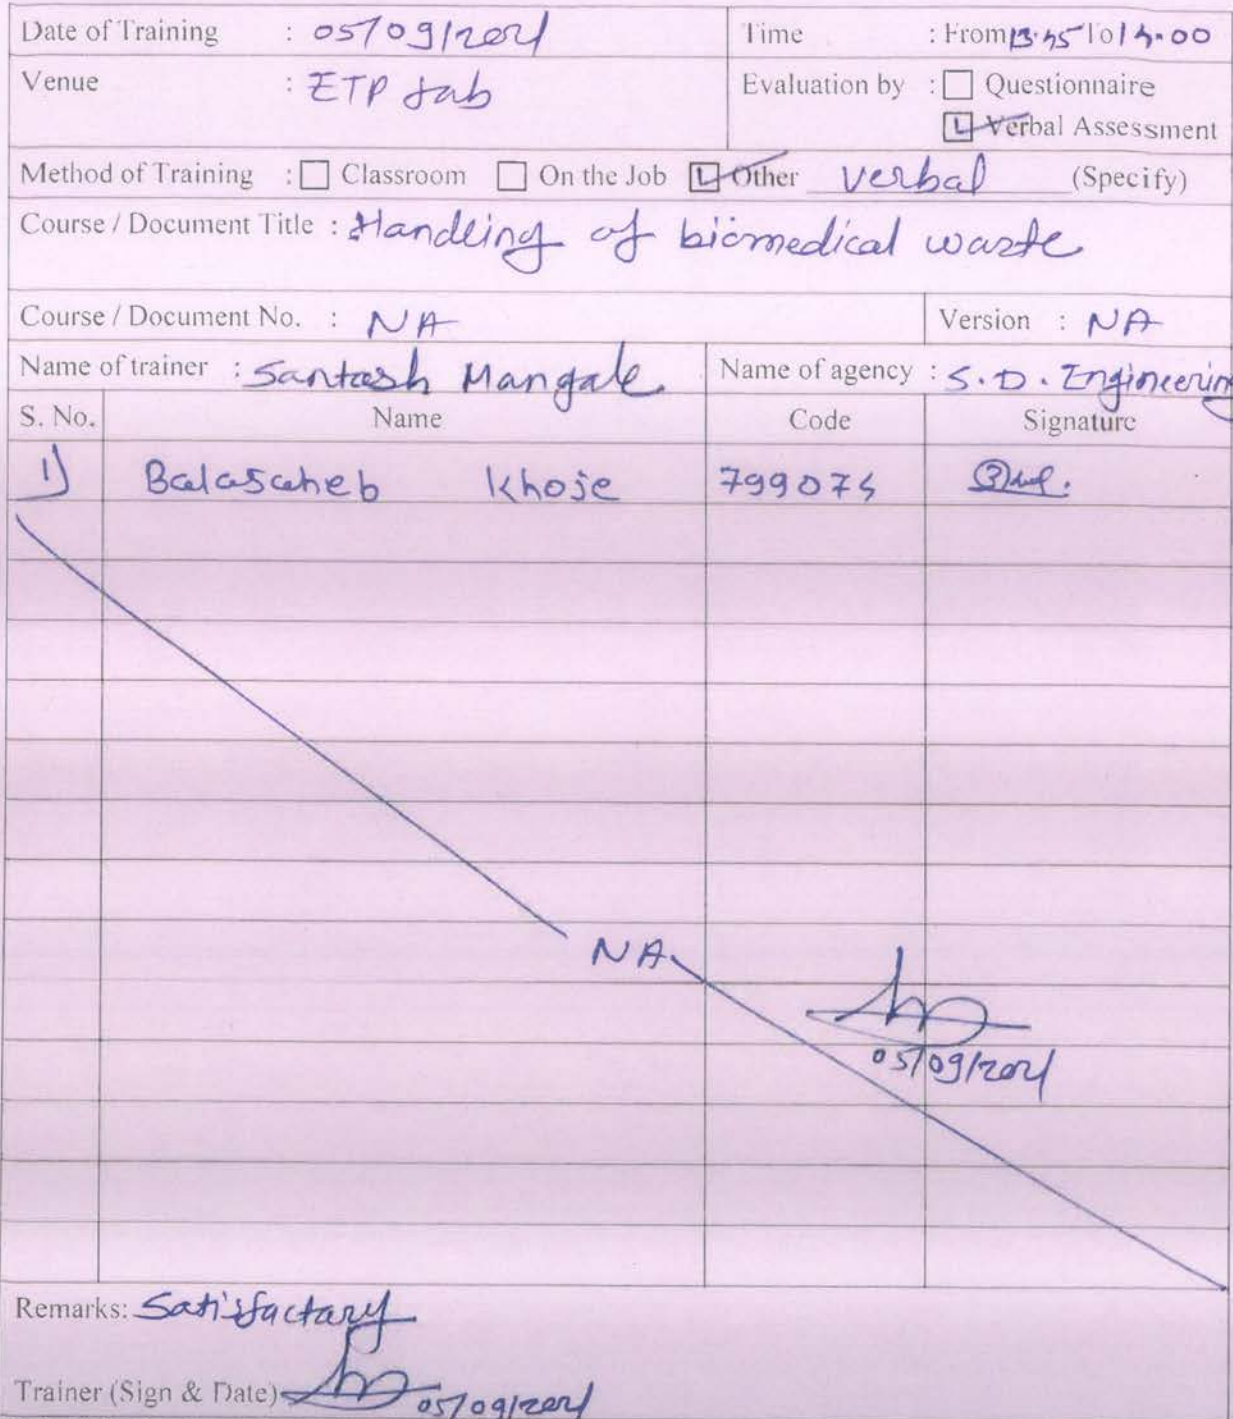 Date of Training : 05/09/2021 Time : From 13.45 To 14.00
Venue : ETP Lab Evaluation by : Questionnaire
Verbal Assessment
Method of Training : Classroom On the Job Other Verbal (Specify)
Course / Document Title : Handling of biomedical waste
Course / Document No. : NA Version : NA
Name of trainer : Santosh Mangale Name of agency : S.D. Engineering
S. No. Name Code Signature
1) Balasaheb Khose 799074
NA
05/09/2021
Remarks: Satisfactary
Trainer (Sign & Date) 05/09/2021